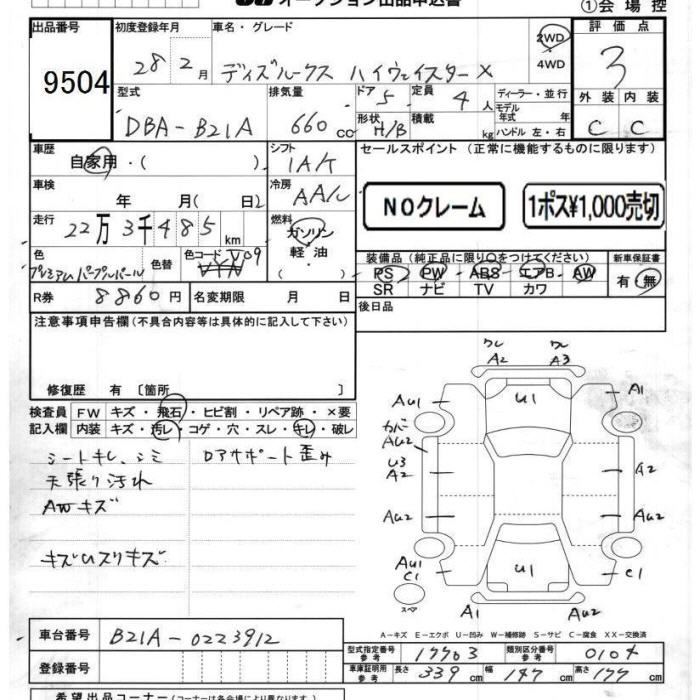 オークション出品申込書
①会場控
出品番号 9504
初度登録年月 28 2月
車名・グレード ディズルークス ハイウェイスターX
2WD
4WD
評価点 3
外装 内装
C C
型式 DBA-B21A
排気量 660 cc
ドア 5
定員 4人
形状 H/B
積載 kg
ディーラー・並行
モデル年式 年
ハンドル 左・右
車歴 自家用・( )
シフト IA/T
車検 年 月(日)
冷房 AA/C
走行 22万3千485km
燃料 ガソリン 軽油 ( )
色 プレミアムパープルパール
色替
色コード V09
R券 8860円
名変期限 月 日
セールスポイント (正常に機能するものに限ります)
NOクレーム
1ポス¥1,000売切
装備品 (純正品に限り○をつけてください)
PS PW ABS エアB AW
SR ナビ TV カワ
新車保証書
有・無
後日品
注意事項申告欄(不具合内容等は具体的に記入して下さい)
修復歴 有 〔箇所 〕
検査員記入欄
FW キズ・飛石・ヒビ割・リペア跡・×要
内装 キズ・汚レ・コゲ・穴・スレ・キレ・破レ
シートキレ、シミ
ロアサポート歪み
天張り汚れ
AWキズ
キズUスリキズ
ワレ A2
ワレ A3
AU1
U1
A1
カバー AU2
U3 A2
G2
AU2
AU2
AU1 C1
U1
C1
スペア
A1
AU2
A-キズ E-エクボ U-凹み W-補修跡 S-サビ C-腐食 XX-交換済
車台番号 B21A-0223912
登録番号
型式指定番号 参考 17703
類別区分番号 参考 0104
車庫証明用 参考 長さ 339cm 幅 147cm 高さ 177cm
希望出品コーナー